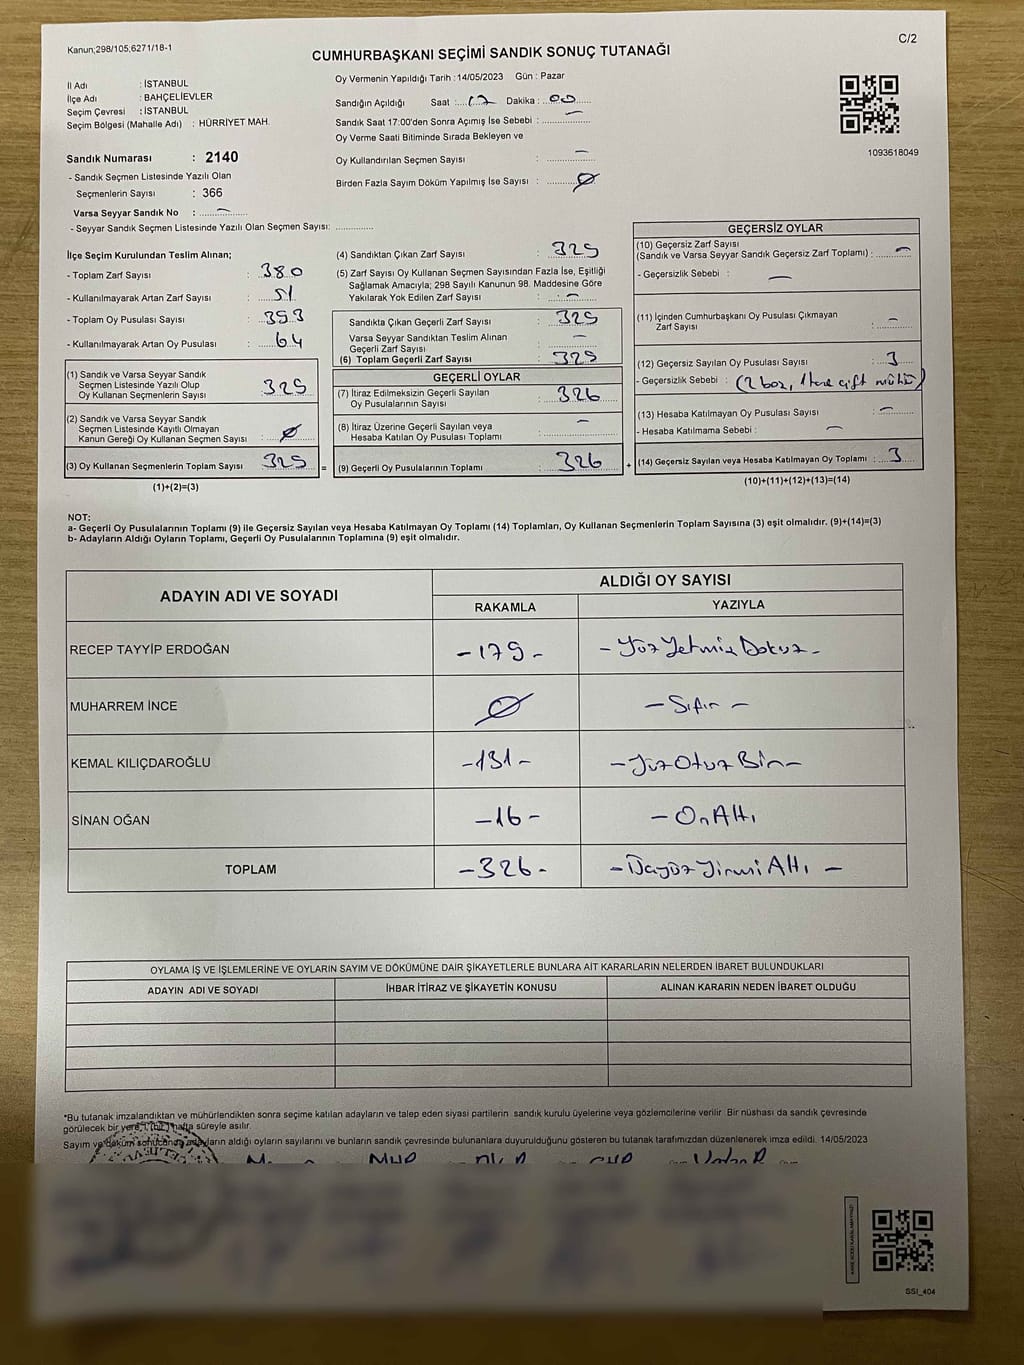 Kanun;298/105;6271/18-1
C/2
CUMHURBAŞKANI SEÇİMİ SANDIK SONUÇ TUTANAĞI
İl Adı : İSTANBUL
İlçe Adı : BAHÇELİEVLER
Seçim Çevresi : İSTANBUL
Seçim Bölgesi (Mahalle Adı) : HÜRRİYET MAH.
Sandık Numarası : 2140
- Sandık Seçmen Listesinde Yazılı Olan
Seçmenlerin Sayısı : 366
Varsa Seyyar Sandık No : -
- Seyyar Sandık Seçmen Listesinde Yazılı Olan Seçmen Sayısı:
Oy Vermenin Yapıldığı Tarih :14/05/2023 Gün : Pazar
Sandığın Açıldığı Saat : 17 Dakika : 00
Sandık Saat 17:00'den Sonra Açımış İse Sebebi : -
Oy Verme Saati Bitiminde Sırada Bekleyen ve
Oy Kullandırılan Seçmen Sayısı : -
Birden Fazla Sayım Döküm Yapılmış İse Sayısı : Ø
1093618049
İlçe Seçim Kurulundan Teslim Alınan;
- Toplam Zarf Sayısı : 380
- Kullanılmayarak Artan Zarf Sayısı : 51
- Toplam Oy Pusulası Sayısı : 393
- Kullanılmayarak Artan Oy Pusulası : 64
(1) Sandık ve Varsa Seyyar Sandık
Seçmen Listesinde Yazılı Olup
Oy Kullanan Seçmenlerin Sayısı : 329
(2) Sandık ve Varsa Seyyar Sandık
Seçmen Listesinde Kayıtlı Olmayan
Kanun Gereği Oy Kullanan Seçmen Sayısı : Ø
(3) Oy Kullanan Seçmenlerin Toplam Sayısı 329 =
(1)+(2)=(3)
(4) Sandıktan Çıkan Zarf Sayısı : 329
(5) Zarf Sayısı Oy Kullanan Seçmen Sayısından Fazla İse, Eşitliği
Sağlamak Amacıyla; 298 Sayılı Kanunun 98. Maddesine Göre
Yakılarak Yok Edilen Zarf Sayısı : -
Sandıkta Çıkan Geçerli Zarf Sayısı : 329
Varsa Seyyar Sandıktan Teslim Alınan
Geçerli Zarf Sayısı : -
(6) Toplam Geçerli Zarf Sayısı : 329
GEÇERLİ OYLAR
(7) İtiraz Edilmeksizin Geçerli Sayılan
Oy Pusulalarının Sayısı : 326
(8) İtiraz Üzerine Geçerli Sayılan veya
Hesaba Katılan Oy Pusulası Toplamı : -
(9) Geçerli Oy Pusulalarının Toplamı : 326 +
GEÇERSİZ OYLAR
(10) Geçersiz Zarf Sayısı
(Sandık ve Varsa Seyyar Sandık Geçersiz Zarf Toplamı) : -
- Geçersizlik Sebebi : -
(11) İçinden Cumhurbaşkanı Oy Pusulası Çıkmayan
Zarf Sayısı : -
(12) Geçersiz Sayılan Oy Pusulası Sayısı : 3
- Geçersizlik Sebebi : (2 boz, 1 tane çift mühür)
(13) Hesaba Katılmayan Oy Pusulası Sayısı : -
- Hesaba Katılmama Sebebi : -
(14) Geçersiz Sayılan veya Hesaba Katılmayan Oy Toplamı : 3
(10)+(11)+(12)+(13)=(14)
NOT:
a- Geçerli Oy Pusulalarının Toplamı (9) ile Geçersiz Sayılan veya Hesaba Katılmayan Oy Toplamı (14) Toplamları, Oy Kullanan Seçmenlerin Toplam Sayısına (3) eşit olmalıdır. (9)+(14)=(3)
b- Adayların Aldığı Oyların Toplamı, Geçerli Oy Pusulalarının Toplamına (9) eşit olmalıdır.
ADAYIN ADI VE SOYADI
ALDIĞI OY SAYISI
RAKAMLA YAZIYLA
RECEP TAYYİP ERDOĞAN -179- -YüzYetmişDokuz-
MUHARREM İNCE Ø -Sıfır-
KEMAL KILIÇDAROĞLU -131- -YüzOtuzBir-
SİNAN OĞAN -16- -OnAltı
TOPLAM -326- -ÜçyüzYirmiAltı-
OYLAMA İŞ VE İŞLEMLERİNE VE OYLARIN SAYIM VE DÖKÜMÜNE DAİR ŞİKAYETLERLE BUNLARA AİT KARARLARIN NELERDEN İBARET BULUNDUKLARI
ADAYIN ADI VE SOYADI İHBAR İTİRAZ VE ŞİKAYETİN KONUSU ALINAN KARARIN NEDEN İBARET OLDUĞU
*Bu tutanak imzalandıktan ve mühürlendikten sonra seçime katılan adayların ve talep eden siyasi partilerin sandık kurulu üyelerine veya gözlemcilerine verilir. Bir nüshası da sandık çevresinde
görülecek bir yere, 1 (bir) hafta süreyle asılır.
Sayım ve döküm sonucunda adayların aldığı oyların sayılarını ve bunların sandık çevresinde bulunanlara duyurulduğunu gösteren bu tutanak tarafımızdan düzenlenerek imza edildi. 14/05/2023
MHP CHP
SSI_404